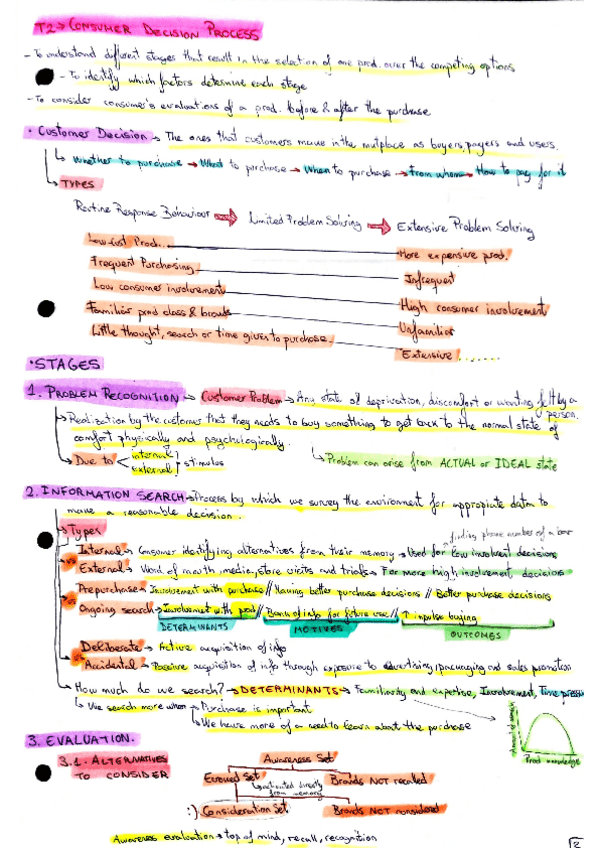 T2→ CONSUMER DECISION PROCESS
- To understand different stages that result in the selection of one prod. over the competing options
- To identify which factors determine each stage
- To consider consumer's evaluations of a prod. before & after the purchase
• Customer Decision → The ones that customers make in the mktplace as buyers, payers and users.
↳ Whether to purchase → What to purchase → When to purchase → From whom → How to pay for it
↳ TYPES
Routine Response Behaviour ⇒ Limited Problem Solving ⇒ Extensive Problem Solving
Low-cost Prod. — More expensive prod.
Frequent Purchasing — Infrequent
Low consumer involvement — High consumer involvement
Familiar prod class & brands — Unfamiliar
Little thought, search or time given to purchase — Extensive .......
• STAGES
1. PROBLEM RECOGNITION → Customer Problem → Any state of deprivation, discomfort or wanting felt by a person.
↳ Realization by the customer that they needs to buy something to get back to the normal state of
comfort physically and psychologically.
↳ Due to < internal / external > stimulus
↳ Problem can arise from ACTUAL or IDEAL state
2. INFORMATION SEARCH → Process by which we survey the environment for appropiate data to
make a reasonable decision.
↳ Types
finding phone number of a bar
Internal → Consumer identifying alternatives from their memory → Used for low involvent decisions
vs
External → Word of mouth, media, store visits and trials → For more high involvement, decisions
Prepurchase → Involvement with purchase // Having better purchase decisions // Better purchase decisions
vs
Ongoing search → Involvement with prod // Bank of info for future use // ↑ impulse buying
DETERMINANTS MOTIVES OUTCOMES
Deliberate → Active acquisition of info
vs
Accidental → Passive acquisition of info through exposure to advertising, packaging and sales promotion
↳ How much do we search? → DETERMINANTS → Familiarity and expertise, Involvement, Time pressure
↳ We search more when → Purchase is important
↳ We have more of a need to learn about the purchase
Amount of search
Prod knowledge
3. EVALUATION.
3.1. ALTERNATIVES
TO CONSIDER
Awareness Set
Evoked Set Brands NOT recalled
↳ activated directly
from memory
:) Consideration Set Brands NOT considered
Awareness evaluation → top of mind, recall, recognition
2